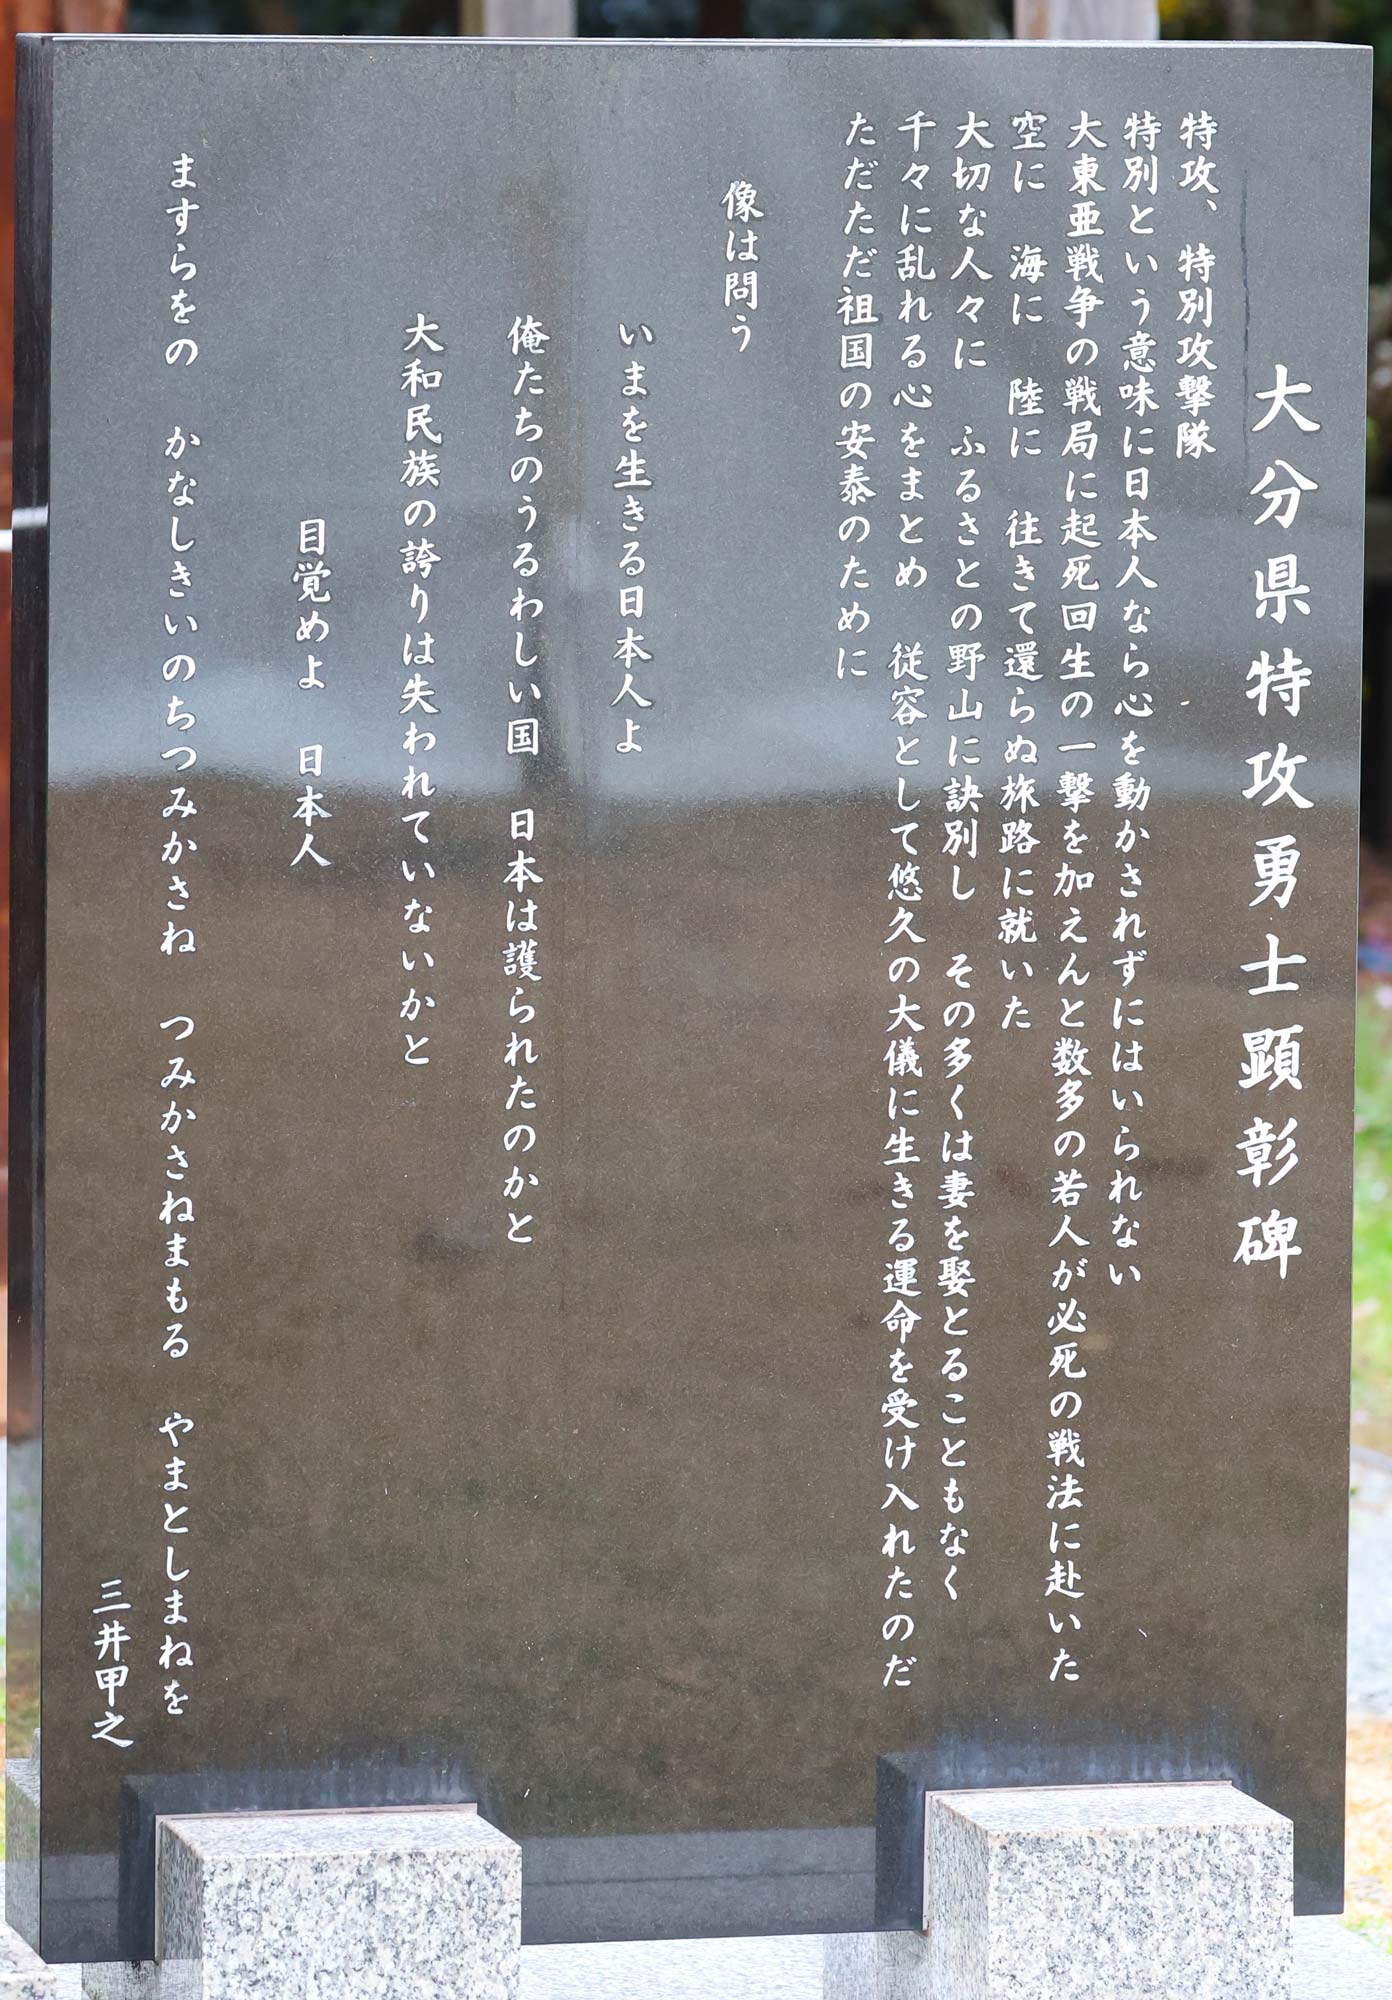 大分県特攻勇士顕彰碑
特攻、特別攻撃隊
特別という意味に日本人なら心を動かされずにはいられない
大東亜戦争の戦局に起死回生の一撃を加えんと数多の若人が必死の戦法に赴いた
空に　海に　陸に　往きて還らぬ旅路に就いた
大切な人々に　ふるさとの野山に訣別し　その多くは妻を娶とることもなく
千々に乱れる心をまとめ　従容として悠久の大儀に生きる運命を受け入れたのだ
ただただ祖国の安泰のために
像は問う
いまを生きる日本人よ
俺たちのうるわしい国　日本は護られたのかと
大和民族の誇りは失われていないかと
目覚めよ　日本人
ますらをの　かなしきいのちつみかさね　つみかさねまもる　やまとしまねを
三井甲之